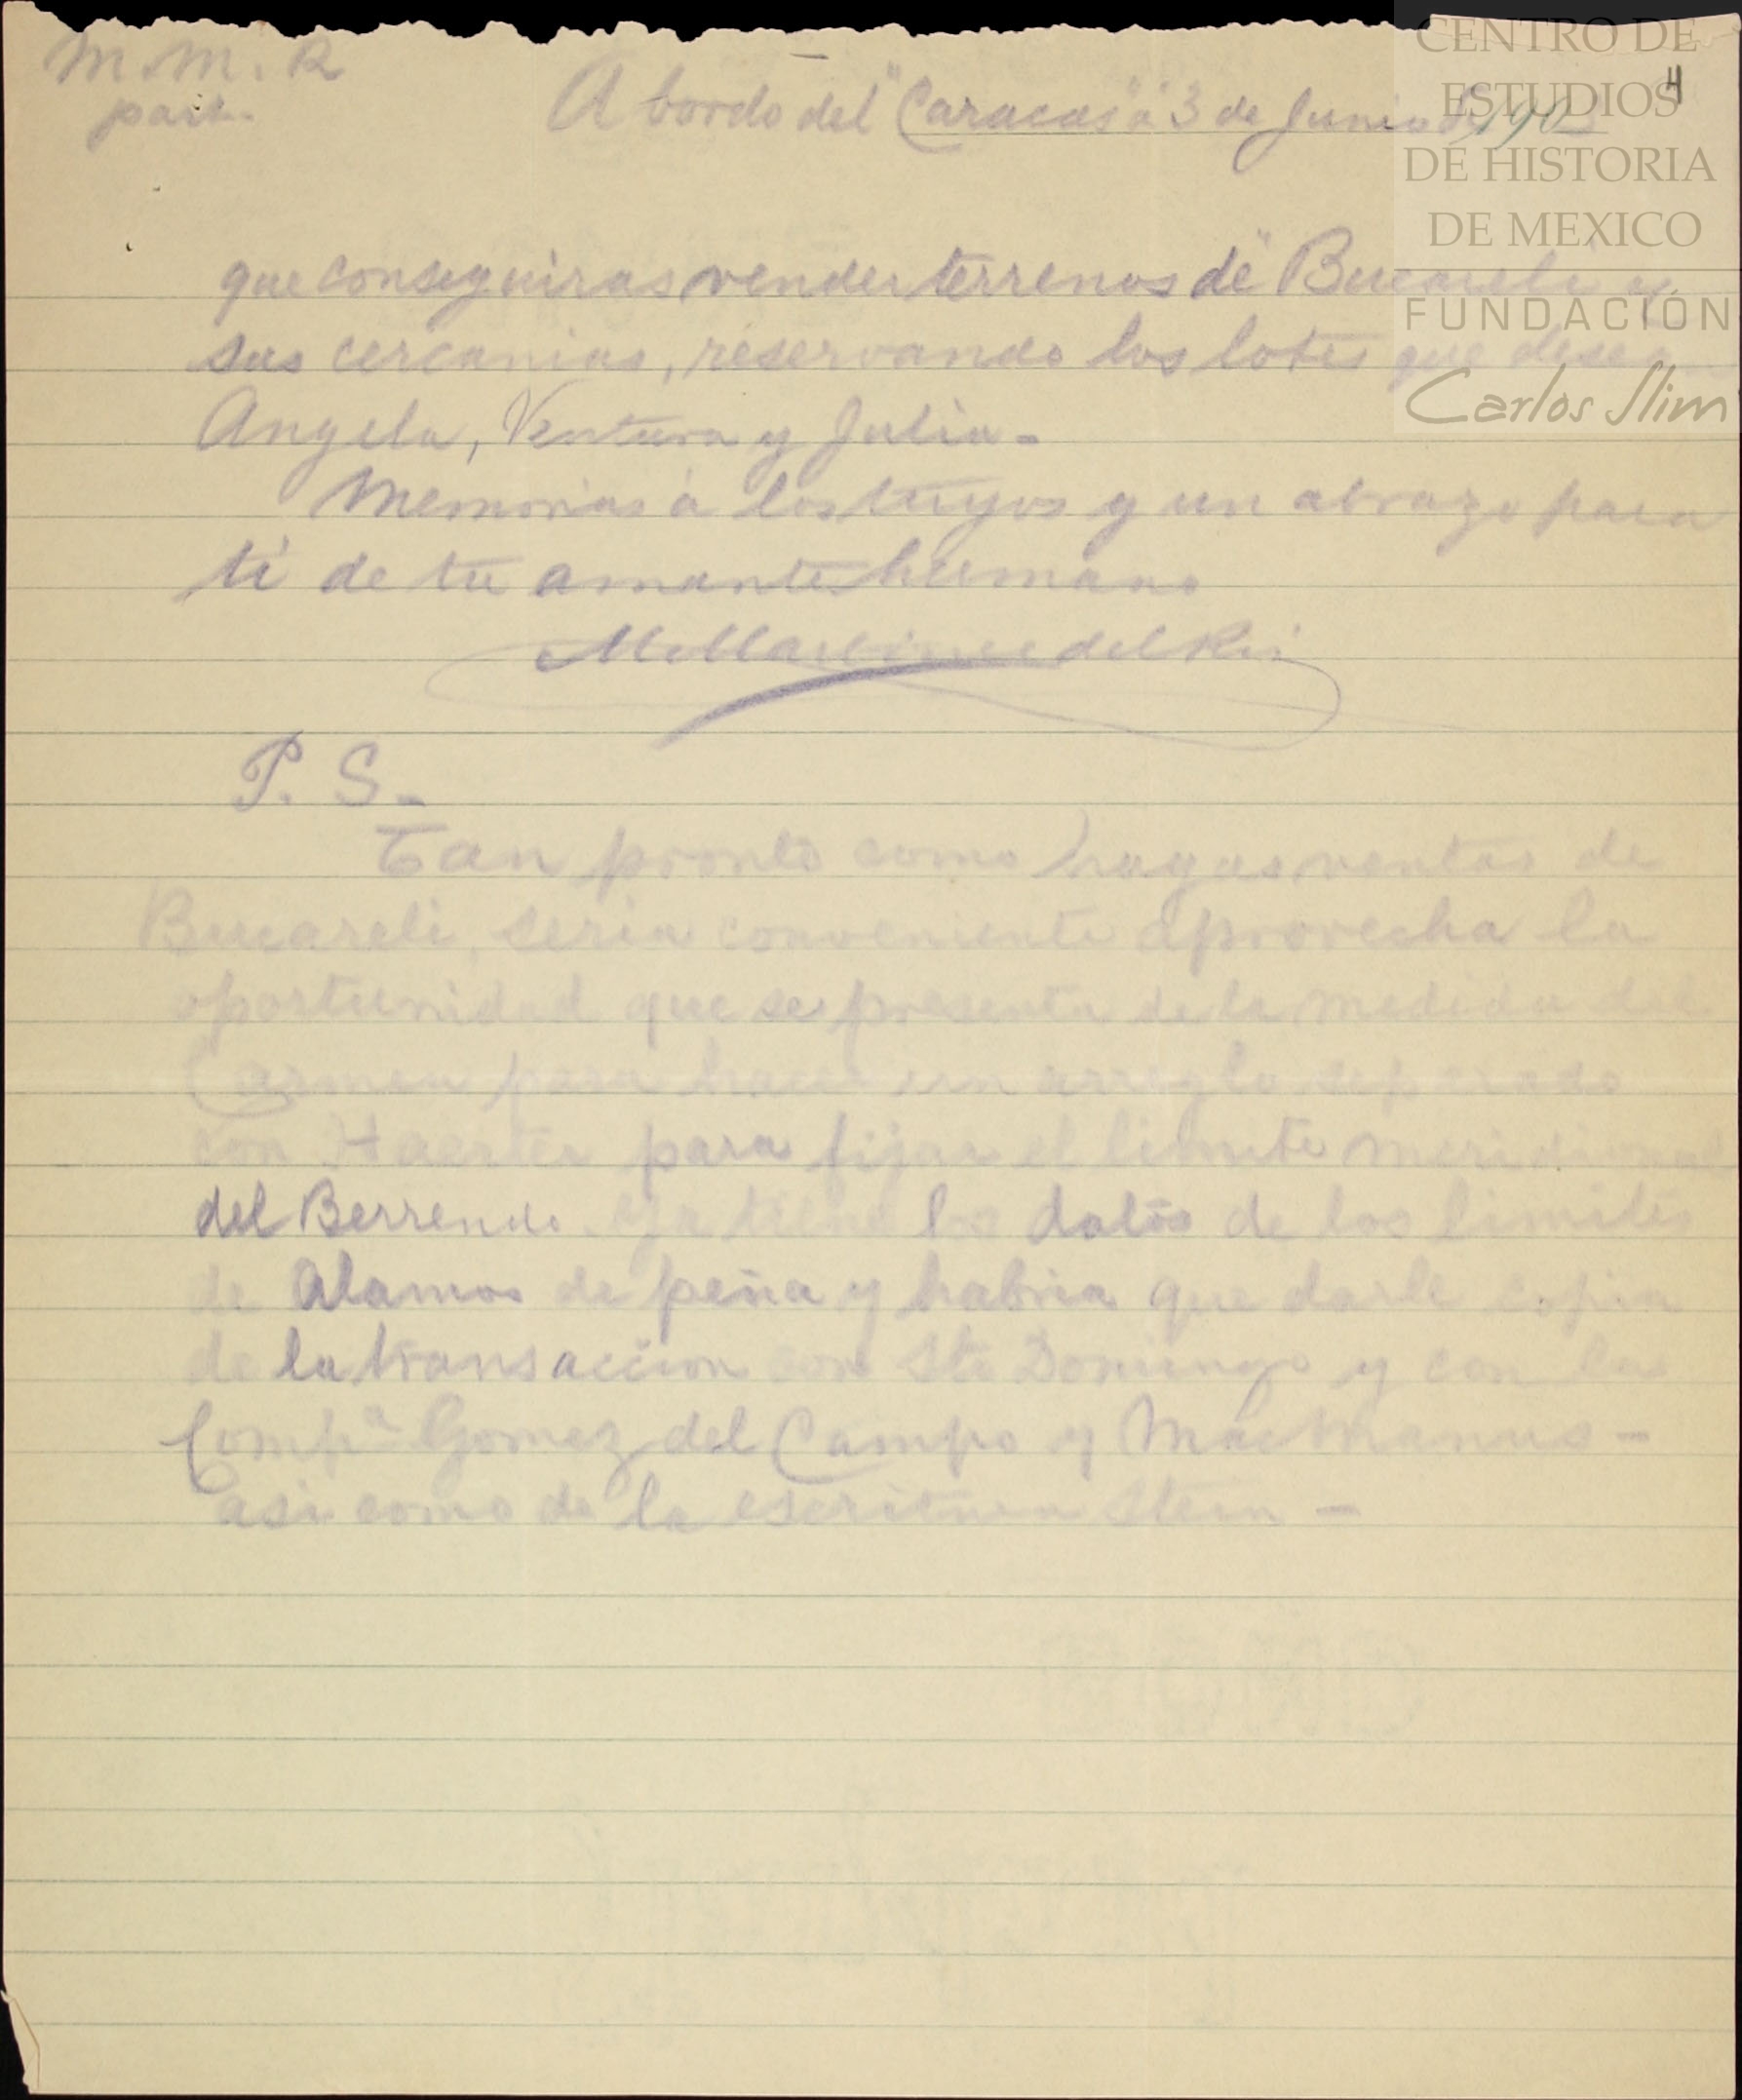 M. M. R
part.
4
A bordo del "Caracas" á 3 de Junio de 190
que conseguiras vender terrenos de "Bucareli" y
sus cercanias, reservando los lotes que desea
Angela, Ventura y Julia -
Memorias á los tuyos y un abrazo para
ti de tu amante hermano
M Martinez del Rio
P. S. -
Tan pronto como hagas ventas de
Bucareli, seria conveniente aprovecha la
oportunidad que se presenta de la medida del
Carmen para hacer un arreglo separado
con para fijar el limite meridional
del Berrendo. Ya tiene los datos de los limites
de Alamos de peña y habria que darle copia
de la transaccion con Sto Domingo y con la
Compª Gomez del Campo y MacManus -
asi como de la escritura Stein -
CENTRO DE
ESTUDIOS
DE HISTORIA
DE MEXICO
FUNDACIÓN
Carlos Slim